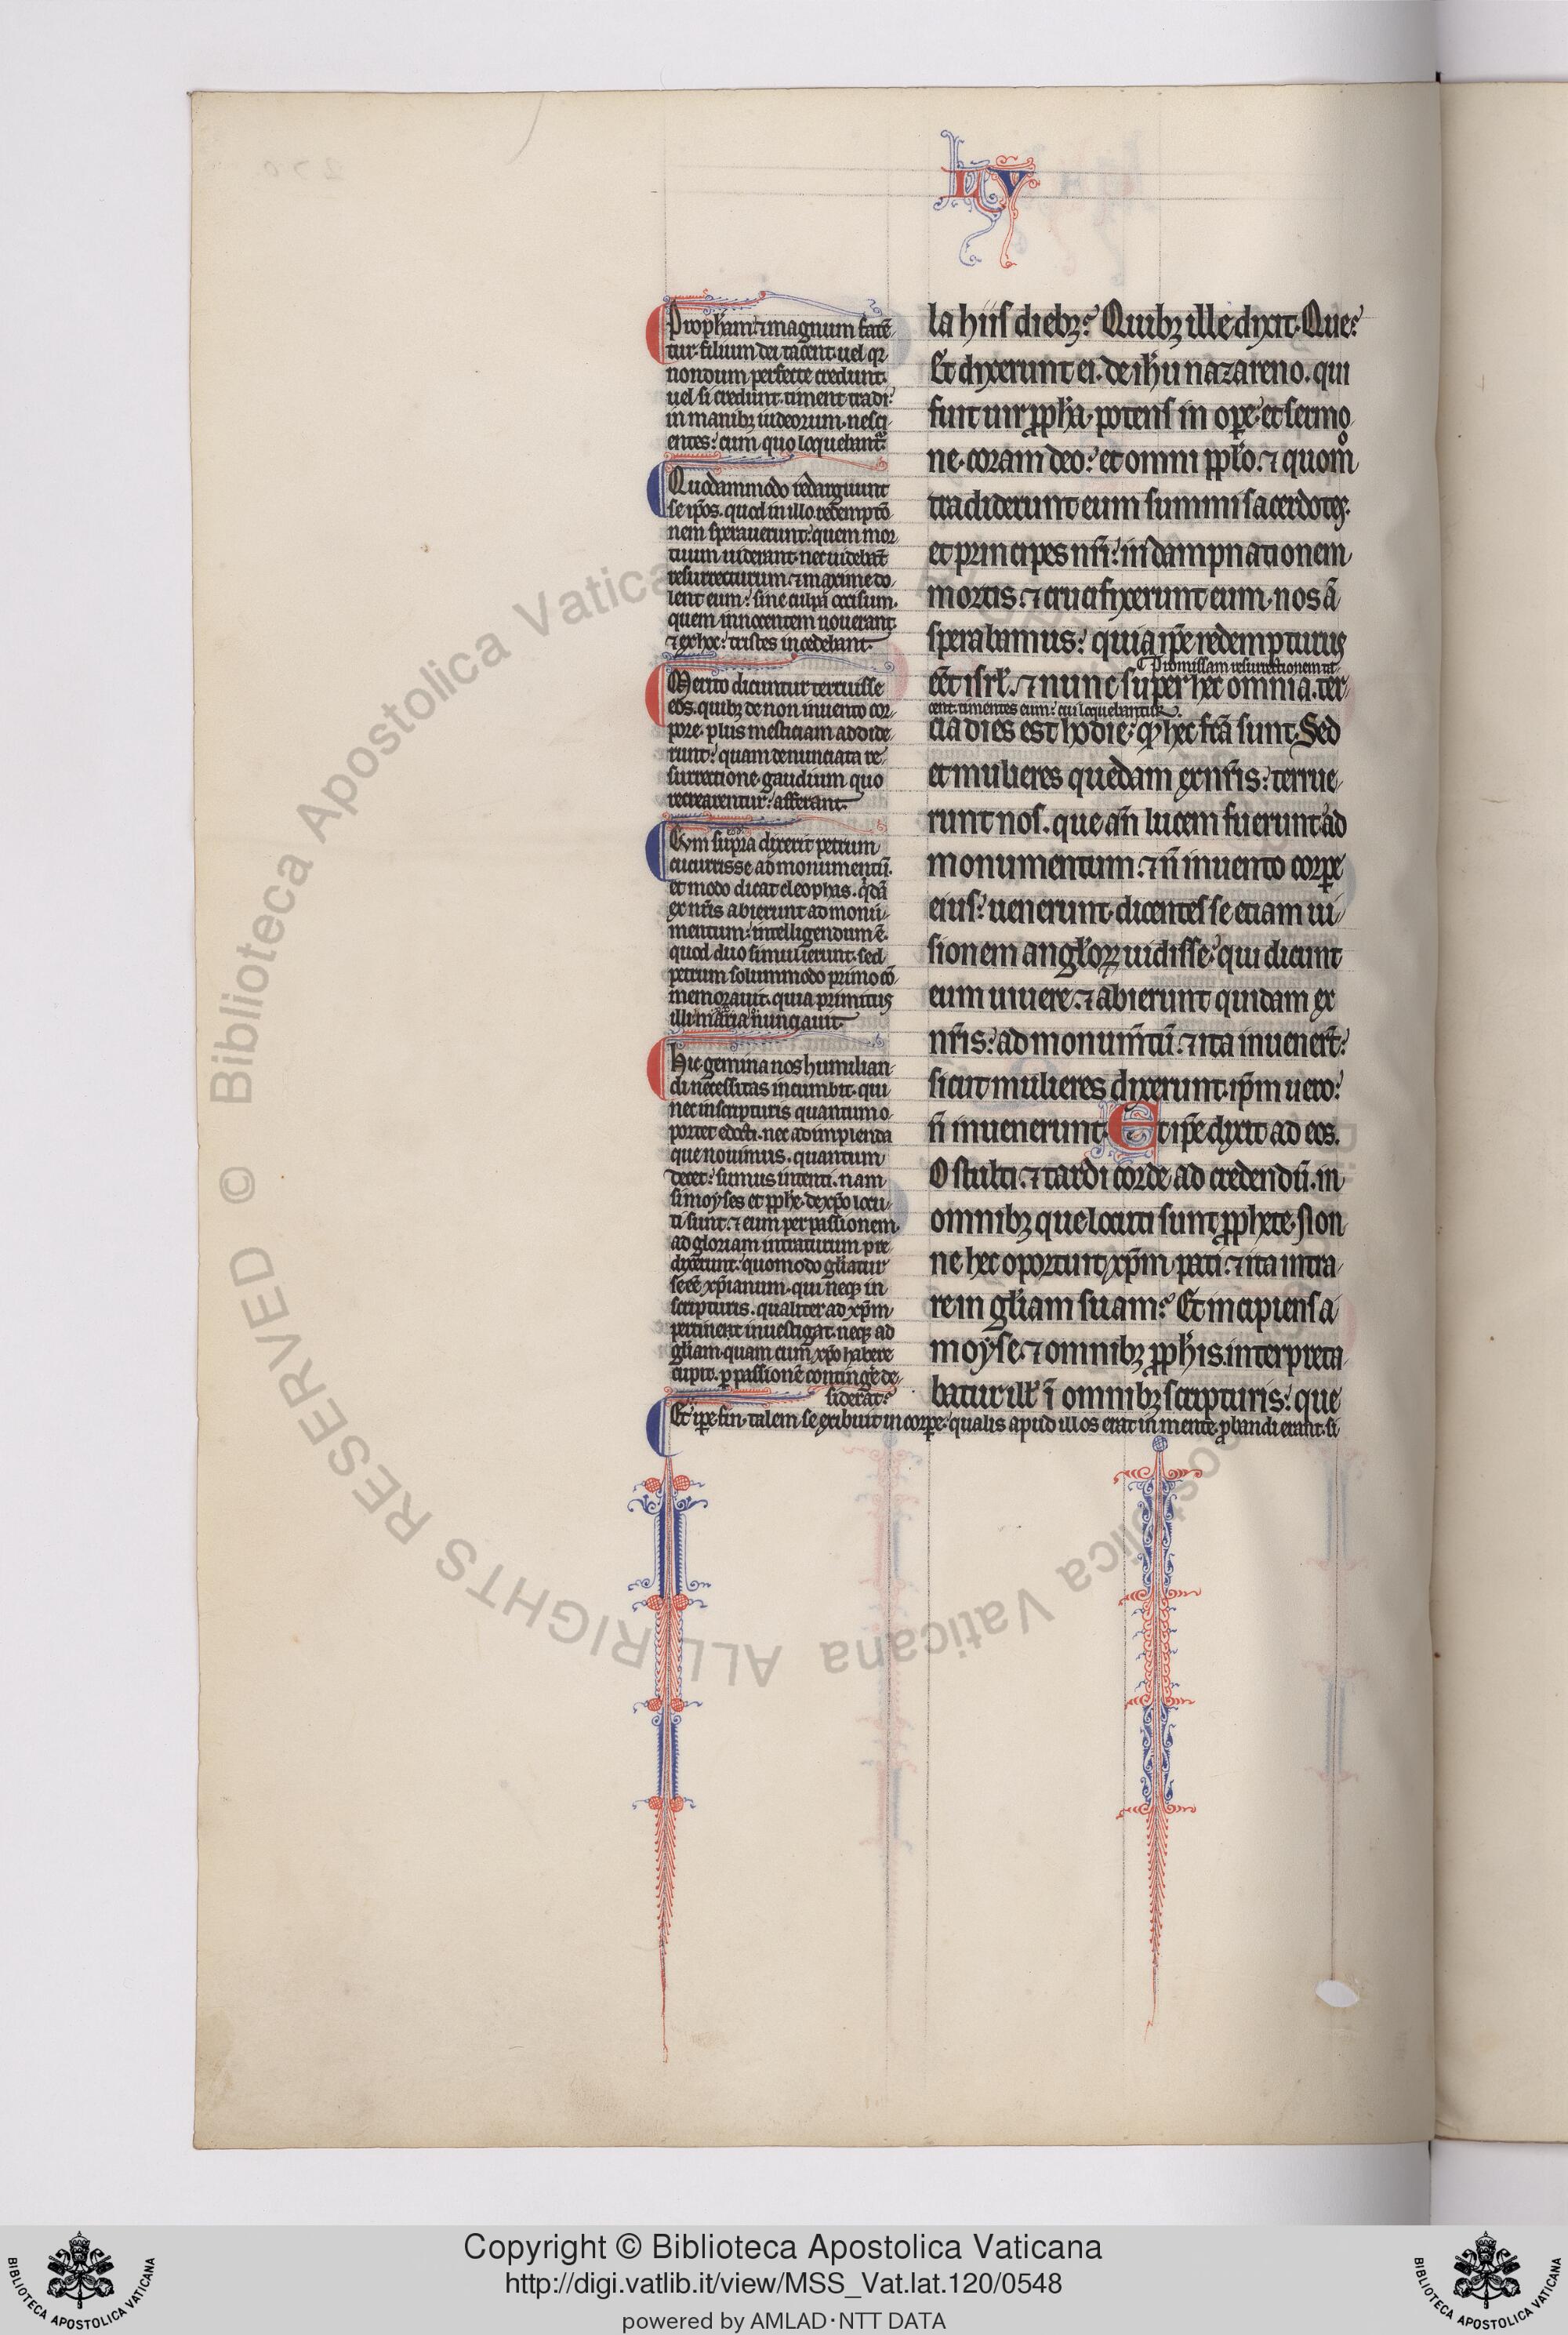 LV
Proph̄am ⁊ magnum faten̄
tur. filium dei tacent. uel qr̄
nondum perfecte credunt.
uel si credunt. timent tradi
in manibꝫ iudeorum. nesci
entes: cum quo loquebant᷑.
Quodammodo redarguunt
se ip̄os. quod in illo redemptō
nem sperauerunt: quem mor
tuum uiderant. nec uidebāt
resurrecturum. ⁊ maxime do
lent eum: sine culpa occisum.
quem innocentem nouerant.
⁊ ex hoc: tristes incedebant.
Merito dicuntur terruisse
eos. quibꝫ de non inuento cor
pore. plus mesticiam addide
runt: quam denunciata re
surrectione. gaudium quo
recrearentur: afferant.
Cvm supra dixerit petrum
cucurrisse ad monumentū.
et modo dicat cleophas. q̇dā
ex nr̄is abierunt ad monu
mentum: intelligendum ē.
quod duo simul ierunt. sed
petrum solummodo primo cō
memorauit. quia primitus
illi maria nunciauit.
Hic gemina nos humilian
di necessitas incumbit. qui
nec in scripturis quantum o
portet edocti. nec ad implenda
que nouimus. quantum
decet: sumus intenti. nam
si moyses et ꝓphe. de xp̄o locu
ti sunt. ⁊ eum per passionem.
ad gloriam intraturum pre
dixerunt: quomodo gl̄iatur
se eē xp̄ianum. qui neqꝫ in
scripturis. qualiter ad xp̄m
pertineant inuestigat. neqꝫ ad
gl̄iam. quam cum xp̄o habere
cupit. ꝑ passionē contingē̄ de
siderat:
Et ip̄e fin. talem se exibuit in corꝑe: qualis apud illos erat in mente. ꝓbandi erant. si
la hiis diebꝫ? Quibꝫ ille dixit. Que?
Et dixerunt ei. de ih̄u nazareno. qui
fuit uir ꝓph̄a. potens in oꝑe. et sermo
ne. coram deo: et omni pp̄lo. ⁊ quom̊
tradiderunt eum summi sacerdotes.
et principes nr̄i: in dampnationem
mortis. ⁊ crucifixerunt eum. nos ā
sperabamus: quia ip̄e redempturus
Promissam resurrectionem ta
eēt isrl̄. ⁊ nunc super hec omnia. ter
cent. timentes eum: cui loquebantur.
cia dies est hodie: qͦ hec fc̄a sunt. Sed
et mulieres quedam ex nr̄is: terrue
runt nos. que an̄ lucem fuerunt ad
monumentum. ⁊ n̄ inuento corꝑe
eius: uenerunt. dicentes se etiam ui
sionem angl̄oꝝ uidisse: qui dicunt
eum uiuere. ⁊ abierunt quidam ex
nr̄is: ad monum̄tū. ⁊ ita inuener̄t:
sicut mulieres dixerunt. ip̄m uero:
n̄ inuenerunt. Et ip̄e dixit ad eos.
O stulti. ⁊ tardi corde ad credendū. in
omnibꝫ que locuti sunt ꝓphete. Non
ne hec oportuit xp̄m pati. ⁊ ita intra
re in gl̄iam suam? Et incipiens a
moyse. ⁊ omnibꝫ ꝓph̄is. interpreta
batur ill̄. ī omnibꝫ scripturis: que
© Biblioteca Apostolica Vaticana ALL RIGHTS RESERVED
Copyright © Biblioteca Apostolica Vaticana
http://digi.vatlib.it/view/MSS_Vat.lat.120/0548
powered by AMLAD·NTT DATA
BIBLIOTECA APOSTOLICA VATICANA
BIBLIOTECA APOSTOLICA VATICANA